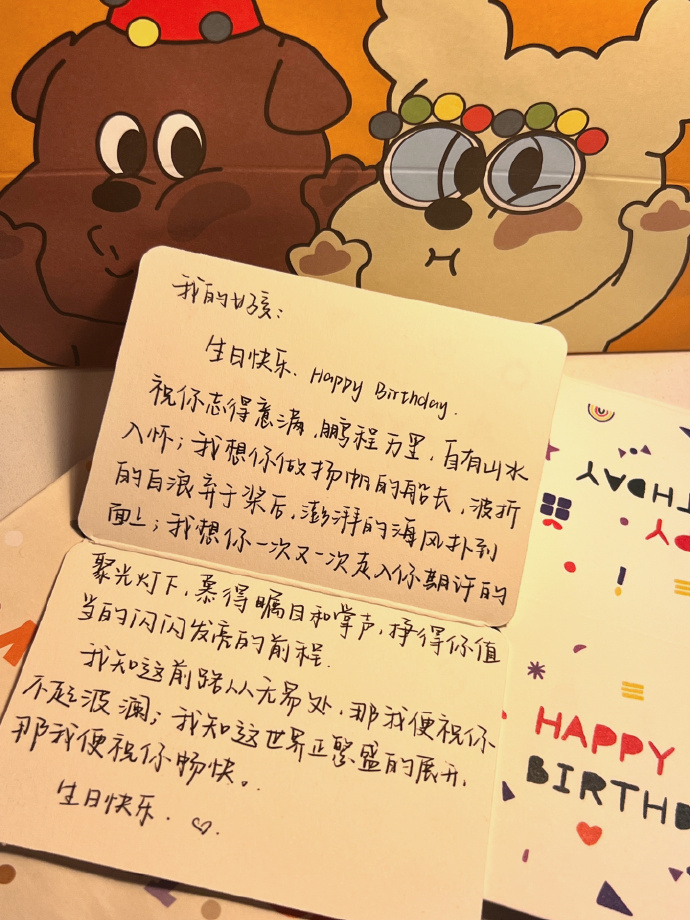 我的女孩:
生日快乐、Happy Birthday.
祝你志得意满,鹏程万里,自有山水
入怀;我想你做扬帆的船长,波折
的白浪弃于桨后,澎湃的海风扑到
面上;我想你一次又一次走入你期许的
聚光灯下,慕得瞩目和掌声,挣得你值
当的闪闪发亮的前程.
我知这前路从无易处,那我便祝你
不起波澜;我知这世界正繁盛的展开,
那我便祝你畅快。
生日快乐.♡.
HAPPY
BIRTHD